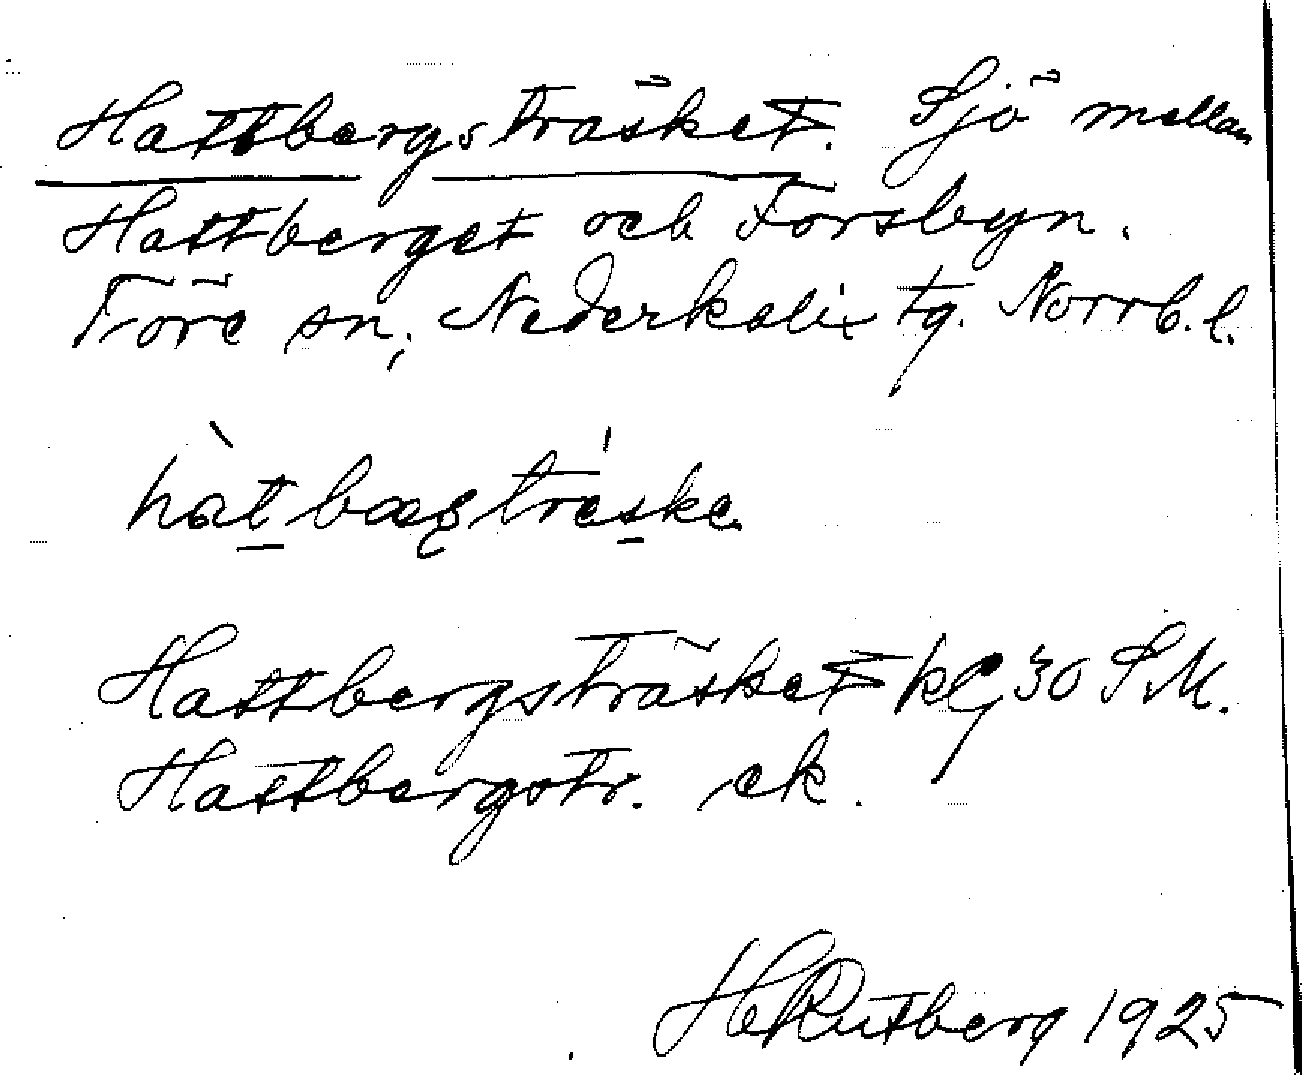 Hattbergsträsket. Sjö mellan
Hattberget och Forsbyn.
Töre sn, Nederkalix tg. Norrb. l.
hàt bæg tréske
Hattbergsträsket 30 S.M.
Hattbergstr. ek.
H Rutberg 1925